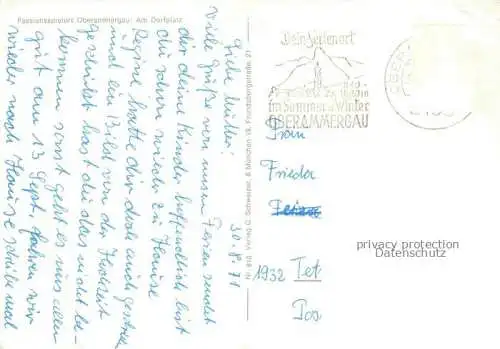 Passionsspielort Oberammergau: Am Dorfplatz
30.8.71
Liebe Mutter!
Viele Grüße von unsern Ferien sendet
dir deine Kinder hoffentlich bist
du schon wieder zu Hause
Regine hatte dir doch auch gestern
und ein Bild von der Hochzeit
geschickt hast du das nicht be-
kommen sonst geht es uns allen
gut am 13 Sept. fahren wir
wieder nach Hause schreib mal
Nr. 810 Verlag C. Schweizer, 8 München 19, Frundsbergstraße 21
Dein Ferienort
im Sommer u. Winter
OBERAMMERGAU
Frau
Frieda
1932 Tet
Pos
privacy protection
Datenschutz